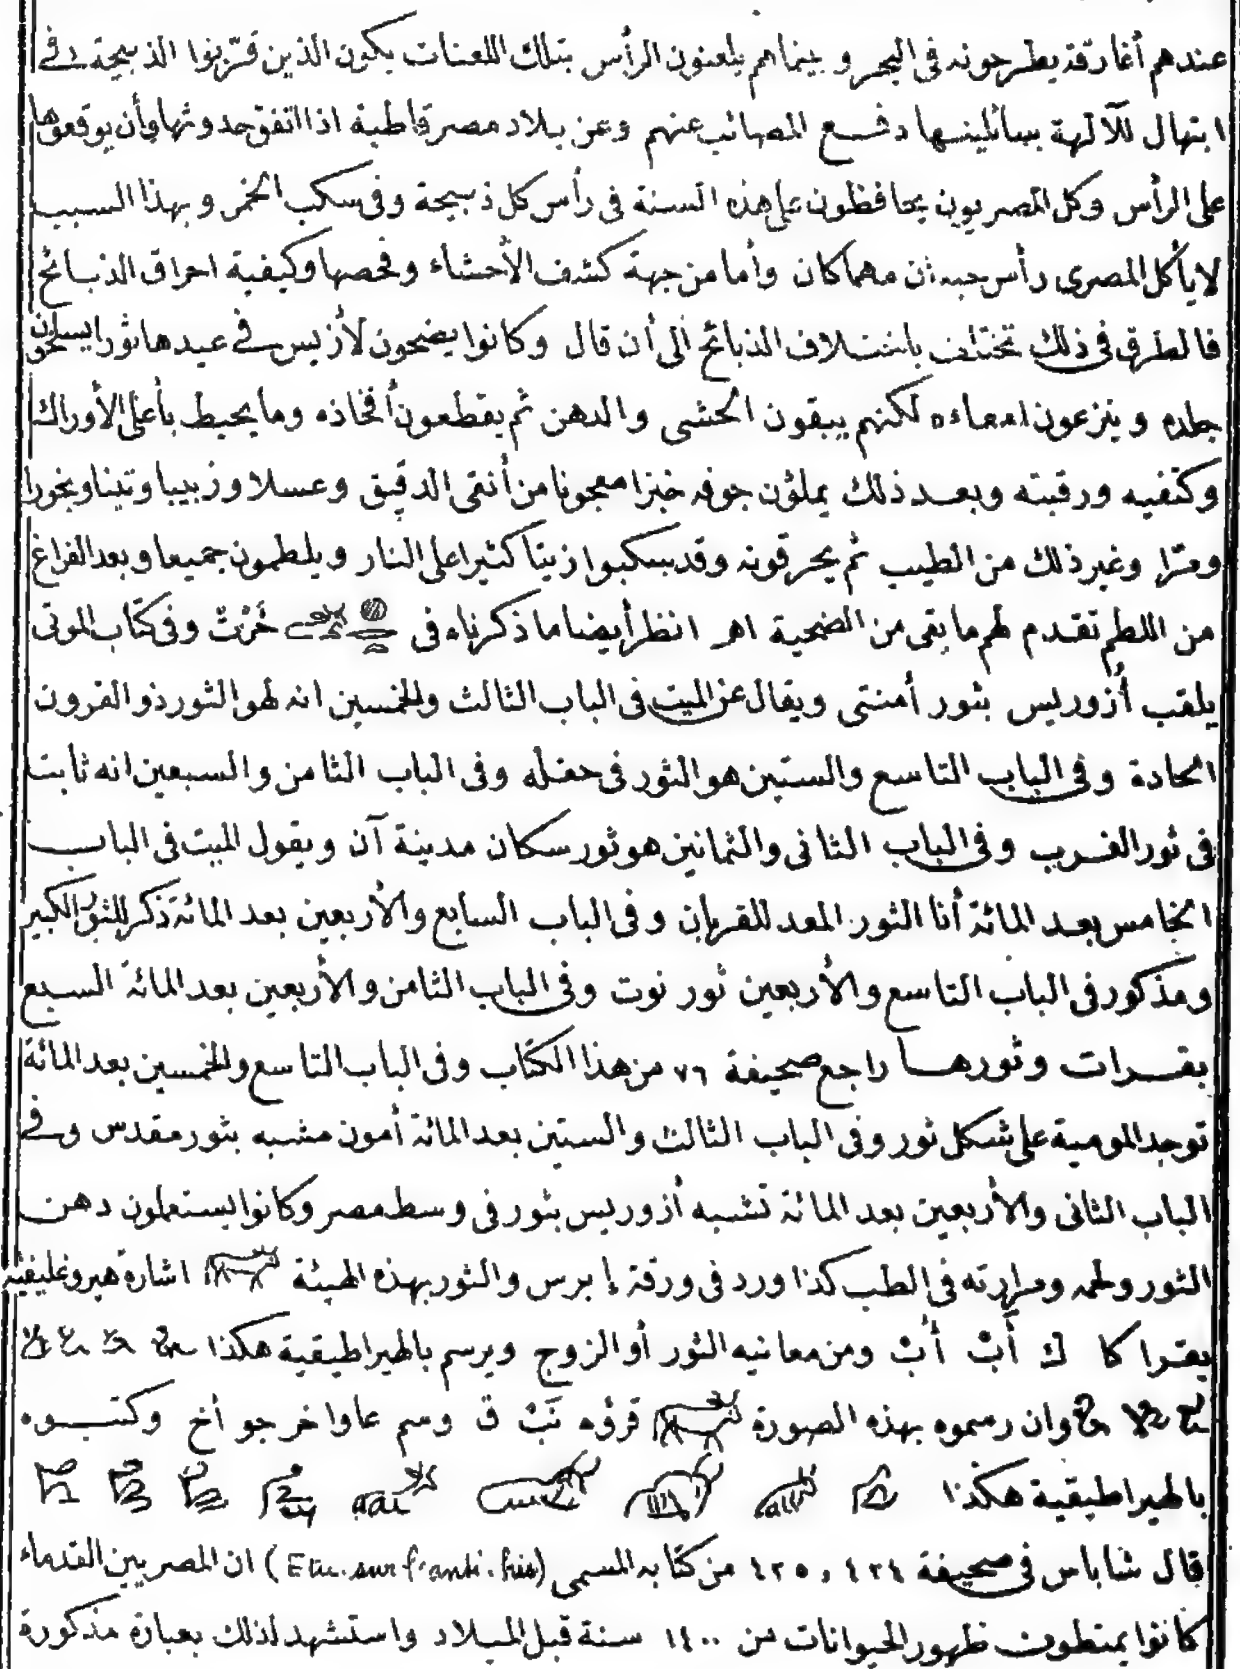 عندهم أغارقة يطرحونه فى البحر و بينماهم يلعنون الرأس بتلك اللعنات يكون الذين قرّبوا الذبيحة فى
ابتهال للآلهة سائلينها دفع المصائب عنهم وعن بلاد مصر قاطبة اذا اتفق حدوثها وأن يوقعوها
على الرأس وكل المصريون يحافظون على هذه السنة فى رأس كل ذبيحة وفى سكب الخمر و بهذا السبب
لا يأكل المصرى رأس حيوان مهما كان وأما من جهة كشف الأحشاء وفحصها وكيفية احراق الذبائح
فالطرق فى ذلك تختلف باختلاف الذبائح الى أن قال وكانوا يضحون لأزيس فى عيدها ثورا يسلخون
جلده و ينزعون امعاءه لكنهم يبقون الحشى والدهن ثم يقطعون أفخاذه وما يحيط بأعلى الأوراك
وكتفيه ورقبته وبعد ذلك يملؤن جوفه خبزا معجونا من أنقى الدقيق وعسلا وزبيبا وتينا وبخورا
ومرّا وغير ذلك من الطيب ثم يحرقونه وقد سكبوا زيتا كثيرا على النار ويلطمون جميعا وبعد الفراغ
من اللطم تقدم لهم ما بقى من الضحية اهـ انظر أيضا ما ذكرناه فى خَرْتْ وفى كتاب الموتى
يلقب أُزوريس بثور أمنتى ويقال عن الميت فى الباب الثالث والخمسين انه لهو الثور ذو القرون
الحادة وفى الباب التاسع والستين هو الثور فى حقله وفى الباب الثامن والسبعين انه ثابت
فى ثور الغرب وفى الباب الثانى والثمانين هو ثور سكان مدينة آن ويقول الميت فى الباب
الخامس بعد المائة أنا الثور المعد للقربان وفى الباب السابع والأربعين بعد المائة ذكر للثور الكبير
ومذكور فى الباب التاسع والأربعين ثور نوت وفى الباب الثامن والأربعين بعد المائة السبع
بقرات وثورها راجع صحيفة ٧٦ من هذا الكتاب وفى الباب التاسع والخمسين بعد المائة
توجد المومية على شكل ثور وفى الباب الثالث والستين بعد المائة أمون مشبه بثور مقدس وفى
الباب الثانى والأربعين بعد المائة تشبه أزوريس بثور فى وسط مصر وكانوا يستعملون دهن
الثور ولحمه ومرارته فى الطب كذا ورد فى ورقة إبرس والثور بهذه الهيئة اشارة هيروغليفية
يقرا كا ك أَبْ أُبْ ومن معانيه الثور أو الزوج ويرسم بالهيراطيقية هكذا
وان رسموه بهذه الصورة قرؤه نَبْ ق وسم عاوا خر جو أخ وكتبوه
بالهيراطيقية هكذا
قال شاباس فى صحيفة ٤٢٤ و ٤٢٥ من كتابه المسمى ان المصريين القدماء
كانوا يمتطون ظهور الحيوانات من ١٤٠٠ سنة قبل الميلاد واستشهد لذلك بعبارة مذكورة